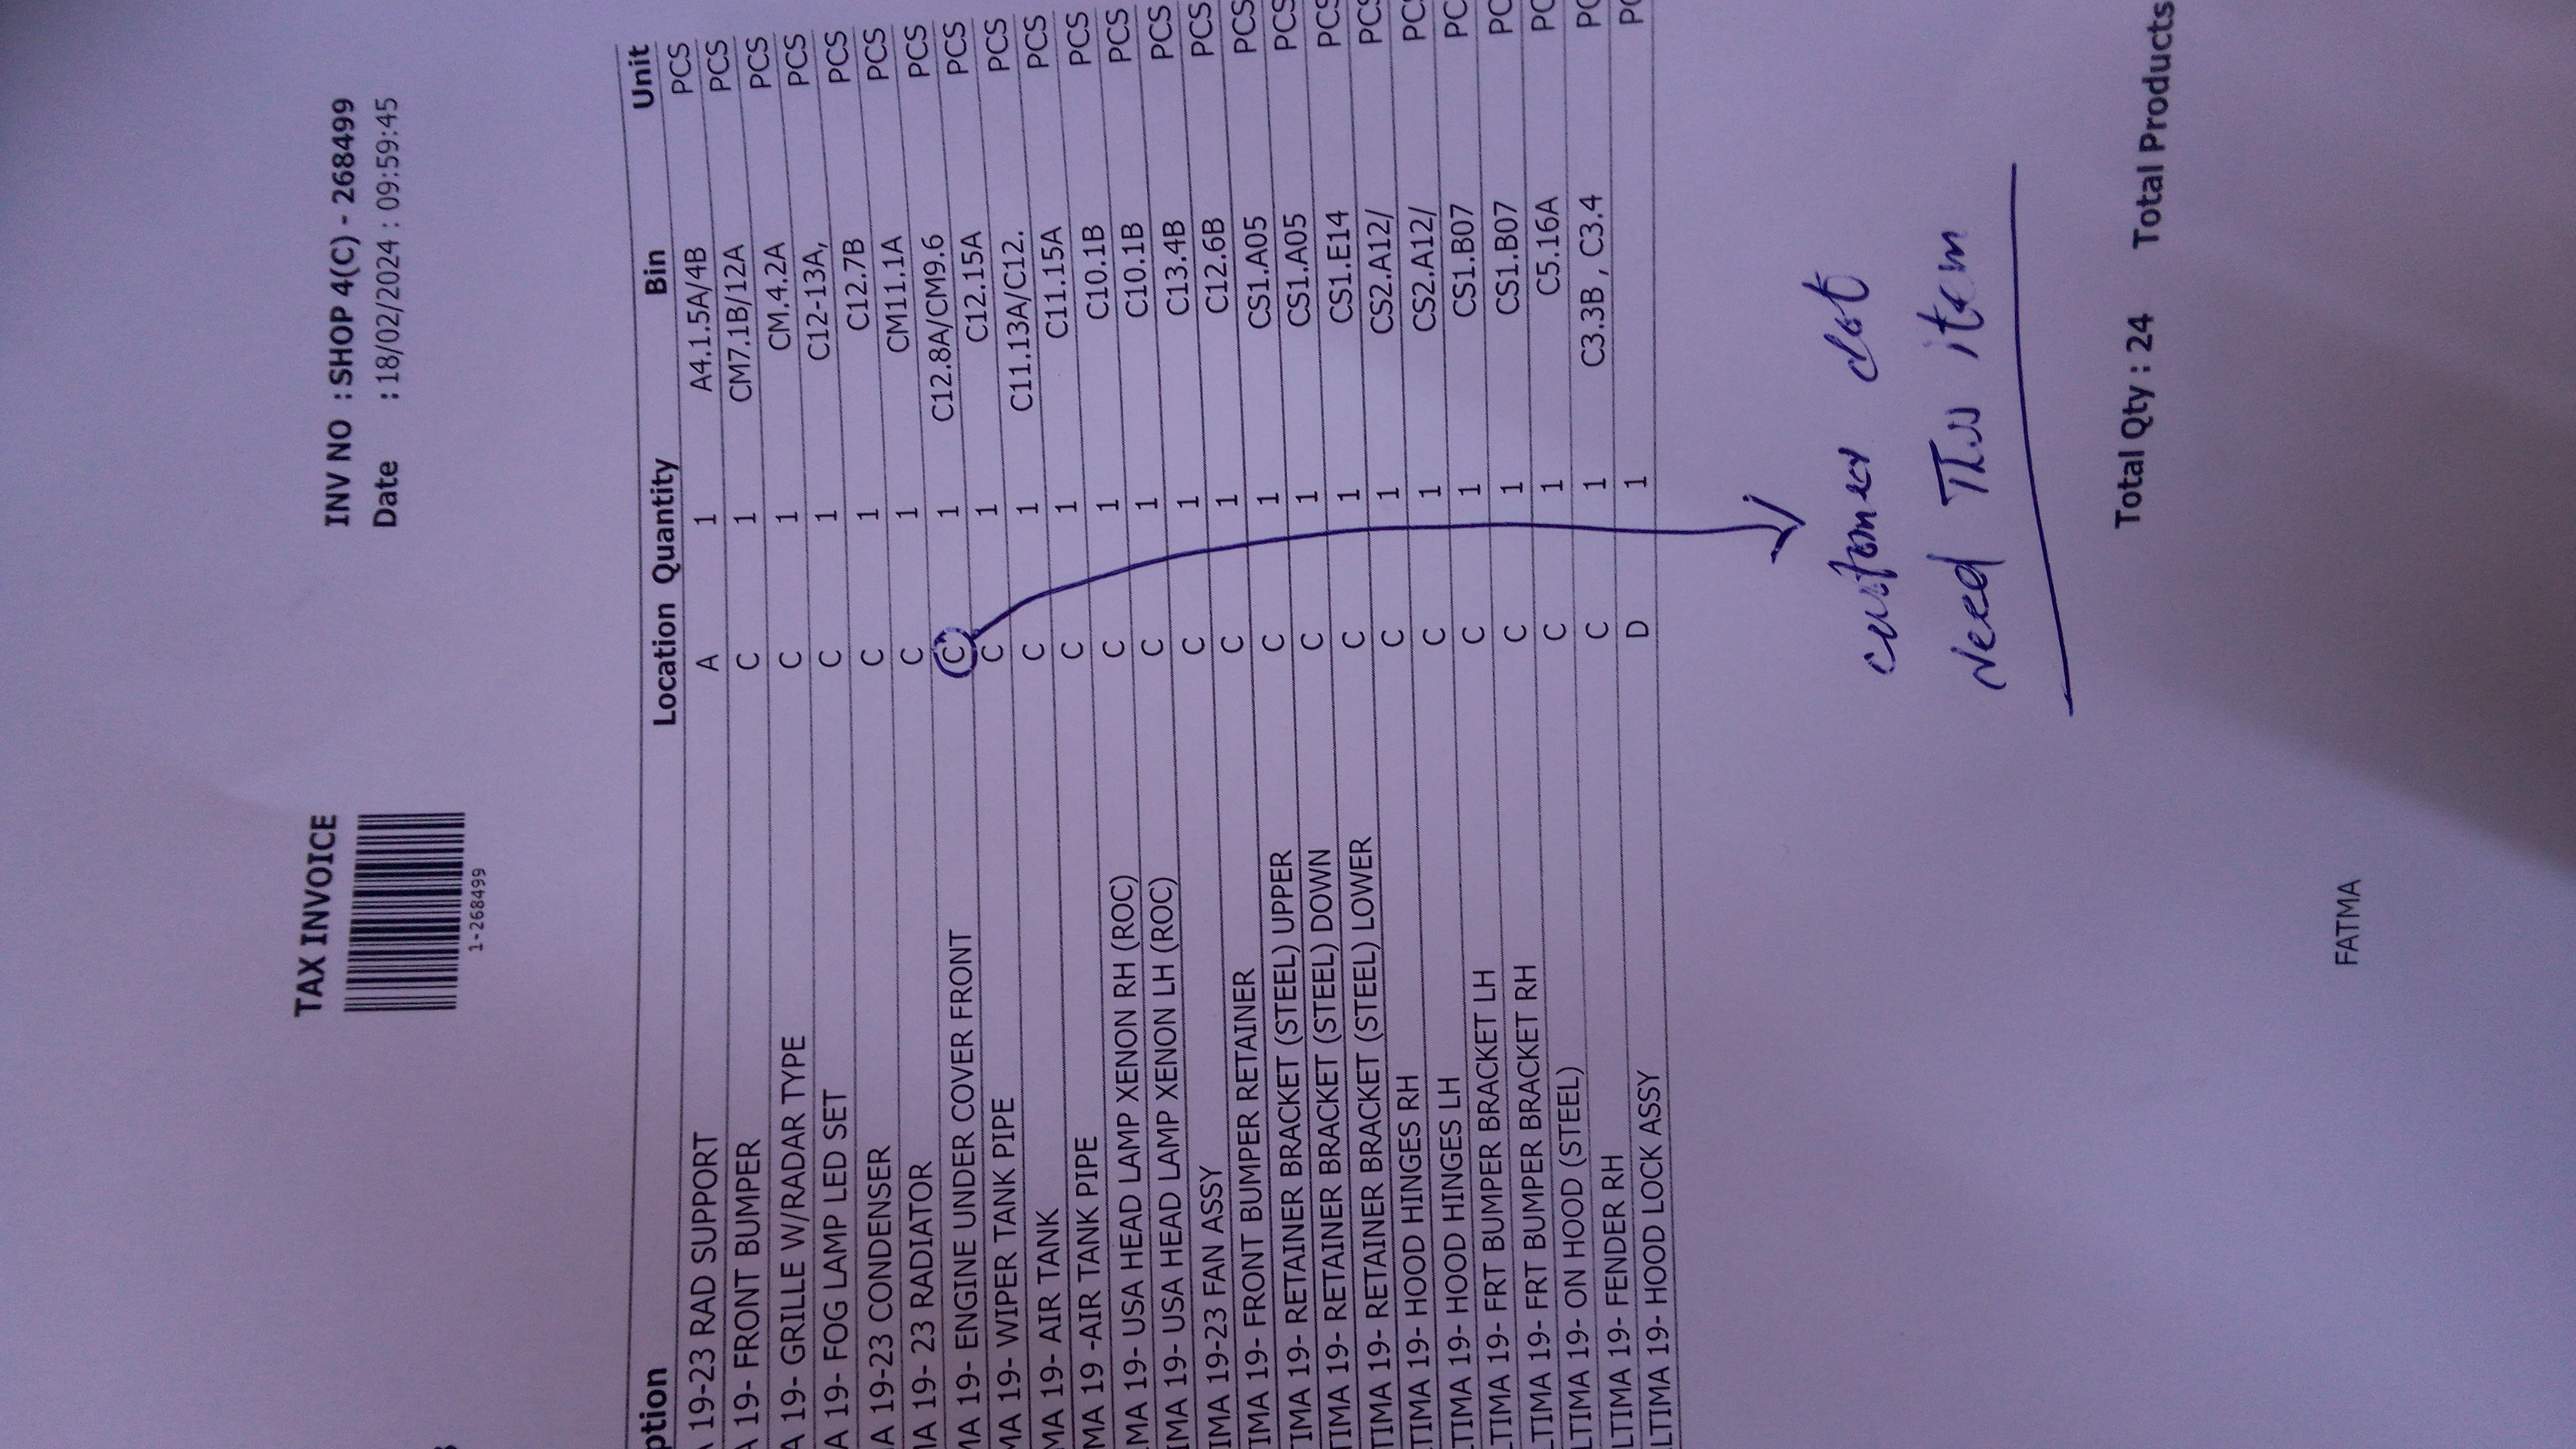 TAX INVOICE
1-268499
INV NO : SHOP 4(C) - 268499
Date : 18/02/2024 : 09:59:45
ption Location Quantity Bin Unit
A 19-23 RAD SUPPORT A 1 A4.1.5A/4B PCS
A 19- FRONT BUMPER C 1 CM7.1B/12A PCS
A 19- GRILLE W/RADAR TYPE C 1 CM.4.2A PCS
A 19- FOG LAMP LED SET C 1 C12-13A, PCS
A 19-23 CONDENSER C 1 C12.7B PCS
IA 19- 23 RADIATOR C 1 CM11.1A PCS
MA 19- ENGINE UNDER COVER FRONT C 1 C12.8A/CM9.6 PCS
MA 19- WIPER TANK PIPE C 1 C12.15A PCS
MA 19- AIR TANK C 1 C11.13A/C12. PCS
MA 19 -AIR TANK PIPE C 1 C11.15A PCS
MA 19- USA HEAD LAMP XENON RH (ROC) C 1 C10.1B PCS
IMA 19- USA HEAD LAMP XENON LH (ROC) C 1 C10.1B PCS
IMA 19-23 FAN ASSY C 1 C13.4B PCS
IMA 19- FRONT BUMPER RETAINER C 1 C12.6B PCS
TIMA 19- RETAINER BRACKET (STEEL) UPPER C 1 CS1.A05 PCS
TIMA 19- RETAINER BRACKET (STEEL) DOWN C 1 CS1.A05 PCS
TIMA 19- RETAINER BRACKET (STEEL) LOWER C 1 CS1.E14 PCS
TIMA 19- HOOD HINGES RH C 1 CS2.A12/ PCS
TIMA 19- HOOD HINGES LH C 1 CS2.A12/ PCS
LTIMA 19- FRT BUMPER BRACKET LH C 1 CS1.B07 PC
LTIMA 19- FRT BUMPER BRACKET RH C 1 CS1.B07 PC
LTIMA 19- ON HOOD (STEEL) C 1 C5.16A PC
LTIMA 19- FENDER RH C 1 C3.3B , C3.4 PC
LTIMA 19- HOOD LOCK ASSY D 1 PC
customer dot
Need This item
Total Qty : 24 Total Products
FATMA